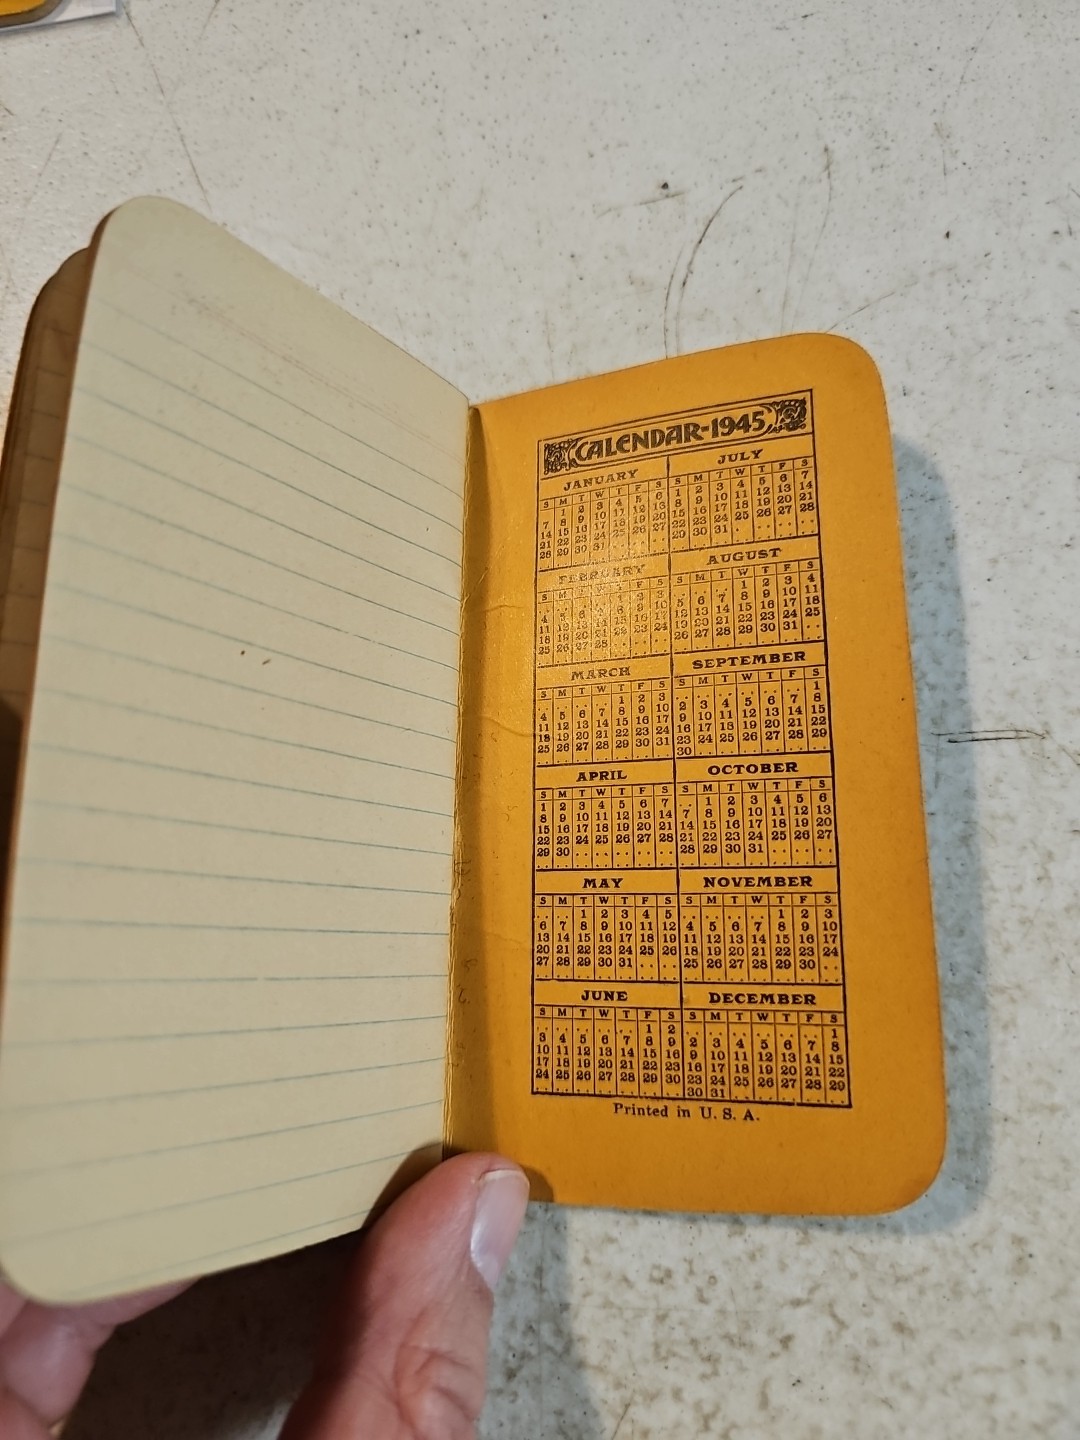 CALENDAR-1945
JANUARY
S M T W T F S
1 2 3 4 5 6
7 8 9 10 11 12 13
14 15 16 17 18 19 20
21 22 23 24 25 26 27
28 29 30 31
FEBRUARY
S M T W T F S
1 2 3
4 5 6 7 8 9 10
11 12 13 14 15 16 17
18 19 20 21 22 23 24
25 26 27 28
MARCH
S M T W T F S
1 2 3
4 5 6 7 8 9 10
11 12 13 14 15 16 17
18 19 20 21 22 23 24
25 26 27 28 29 30 31
APRIL
S M T W T F S
1 2 3 4 5 6 7
8 9 10 11 12 13 14
15 16 17 18 19 20 21
22 23 24 25 26 27 28
29 30
MAY
S M T W T F S
1 2 3 4 5
6 7 8 9 10 11 12
13 14 15 16 17 18 19
20 21 22 23 24 25 26
27 28 29 30 31
JUNE
S M T W T F S
1 2
3 4 5 6 7 8 9
10 11 12 13 14 15 16
17 18 19 20 21 22 23
24 25 26 27 28 29 30
JULY
S M T W T F S
1 2 3 4 5 6 7
8 9 10 11 12 13 14
15 16 17 18 19 20 21
22 23 24 25 26 27 28
29 30 31
AUGUST
S M T W T F S
1 2 3 4
5 6 7 8 9 10 11
12 13 14 15 16 17 18
19 20 21 22 23 24 25
26 27 28 29 30 31
SEPTEMBER
S M T W T F S
1
2 3 4 5 6 7 8
9 10 11 12 13 14 15
16 17 18 19 20 21 22
23 24 25 26 27 28 29
30
OCTOBER
S M T W T F S
1 2 3 4 5 6
7 8 9 10 11 12 13
14 15 16 17 18 19 20
21 22 23 24 25 26 27
28 29 30 31
NOVEMBER
S M T W T F S
1 2 3
4 5 6 7 8 9 10
11 12 13 14 15 16 17
18 19 20 21 22 23 24
25 26 27 28 29 30
DECEMBER
S M T W T F S
1
2 3 4 5 6 7 8
9 10 11 12 13 14 15
16 17 18 19 20 21 22
23 24 25 26 27 28 29
30 31
Printed in U. S. A.